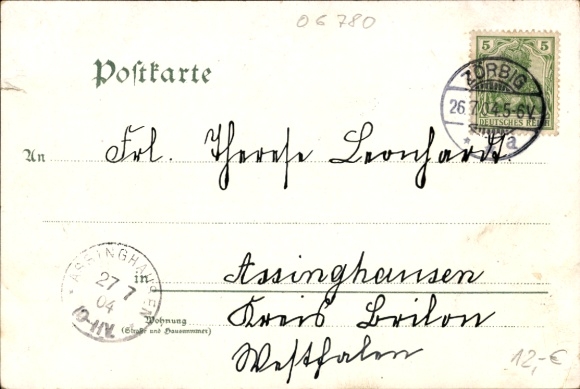 06780
Postkarte
5 5
DEUTSCHES REICH
ZÖRBIG
26.7.04.5-6V.
* a
An Frl. Therese Leonhardt.
ASSINGHAUSEN
27 7
04
10-11V.
in Assinghausen
Wohnung
(Straße und Hausnummer)
Kreis Brilon
Westfalen
12,-€